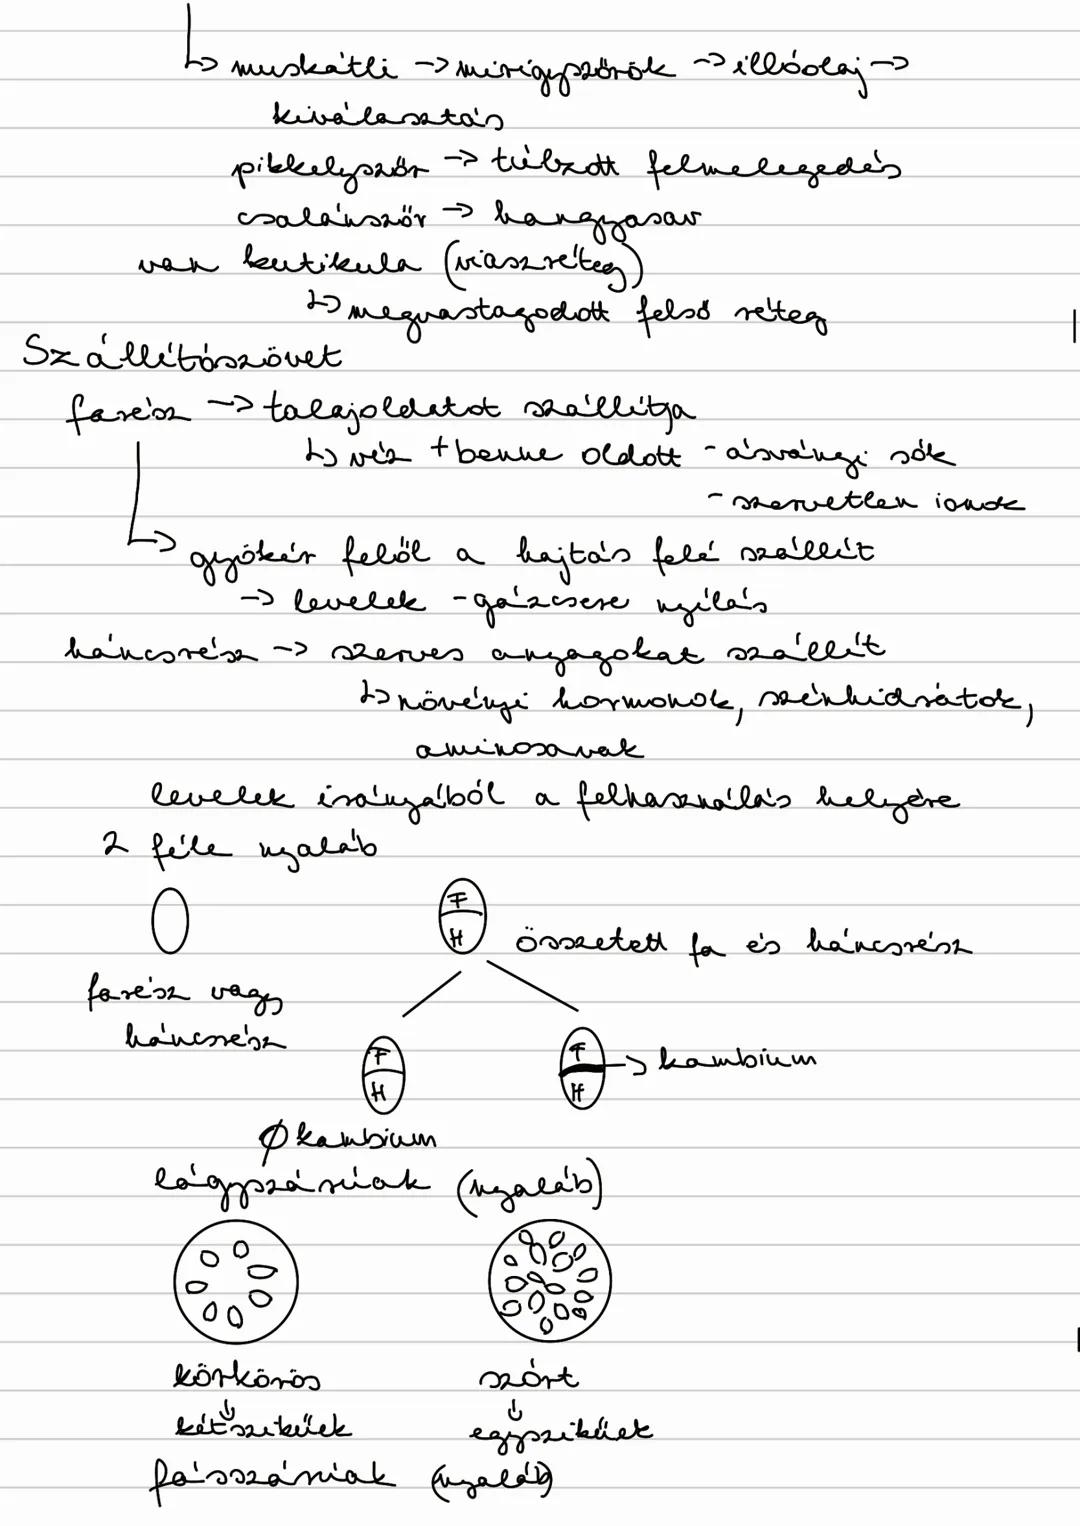 ↳ muskátli → mirigyszőrök → illóolaj →
kiválasztás
pikkelyszőr → túlzott felmelegedés
csalánszőr → hangyasav
van kutikula (viaszréteg)
↳ megvastagodott felső réteg
Szállítószövet
farész → talajoldatot szállítja
↳ víz + benne oldott - ásványi sók
- szervetlen ionok
↳ gyökér felől a hajtás felé szállít
→ levelek - gázcsere nyílás
háncsrész → szerves anyagokat szállít
↳ növényi hormonok, szénhidrátok,
aminosavak
levelek irányából a felhasználás helyére
2 féle nyaláb
F
H
összetett fa és háncsrész
farész vagy
háncsrész
F
H
F
H
→ kambium
Ø kambium
lágyszárúak (nyaláb)
körkörös szórt
↓ ↓
kétszikűek egyszikűek
fásszárúak (nyaláb)